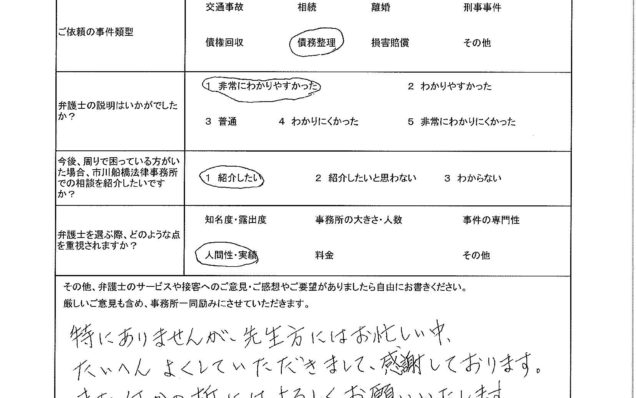 交通事故 相続 離婚 刑事事件
ご依頼の事件類型
債権回収 債務整理 損害賠償 その他
1 非常にわかりやすかった 2 わかりやすかった
弁護士の説明はいかがでした
か？
3 普通 4 わかりにくかった 5 非常にわかりにくかった
今後、周りで困っている方がい
た場合、市川船橋法律事務所
での相談を紹介したいです
か？
1 紹介したい 2 紹介したいと思わない 3 わからない
知名度・露出度 事務所の大きさ・人数 事件の専門性
弁護士を選ぶ際、どのような点
を重視されますか？
人間性・実績 料金 その他
その他、弁護士のサービスや接客へのご意見・ご感想やご要望がありましたら自由にお書きください。
厳しいご意見も含め、事務所一同励みにさせていただきます。
特にありませんが、先生方にはお忙しい中、
たいへんよくしていただきまして、感謝しております。
また何かの折にはよろしくお願いいたします